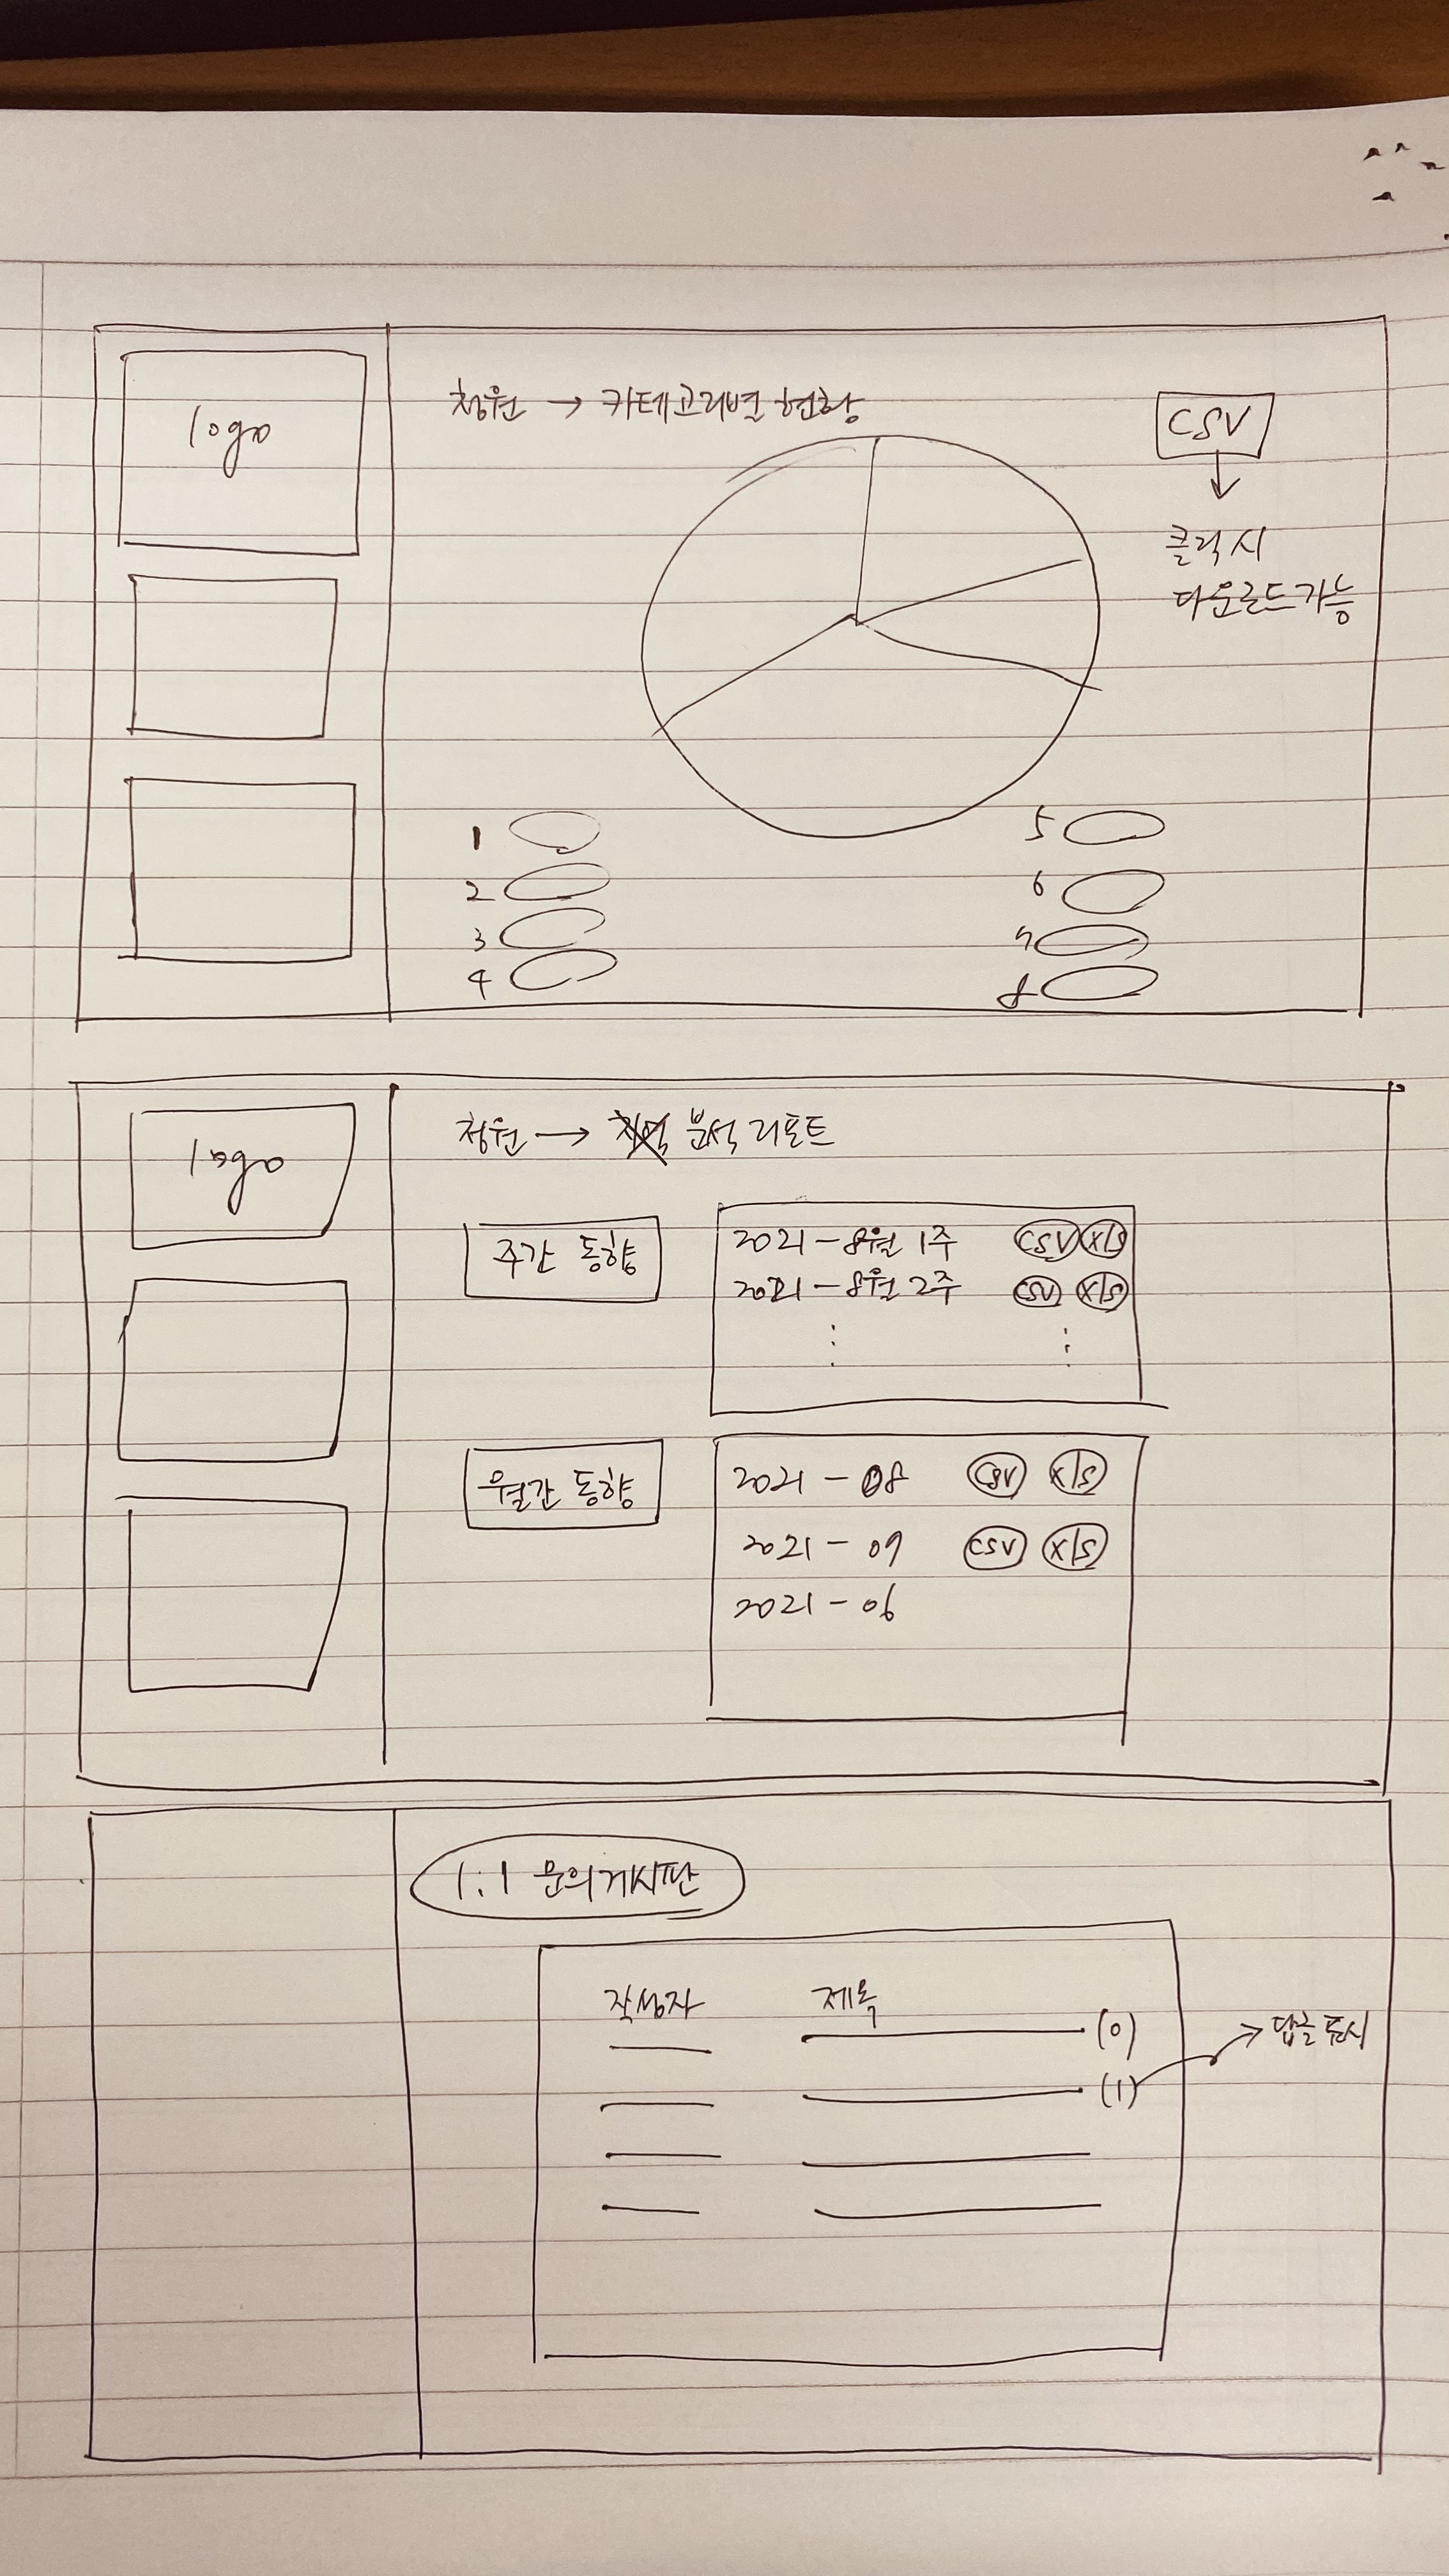 logo
청원 → 카테고리별 현황
CSV
클릭시
다운로드가능
1
2
3
4
5
6
7
8
logo
청원 → 분석 리포트
주간 동향
2021 - 8월 1주 CSV xls
2021 - 8월 2주 CSV xls
월간 동향
2021 - 08 CSV xls
2021 - 09 CSV xls
2021 - 06
1:1 문의게시판
작성자 제목
(0)
(1) → 답글 표시